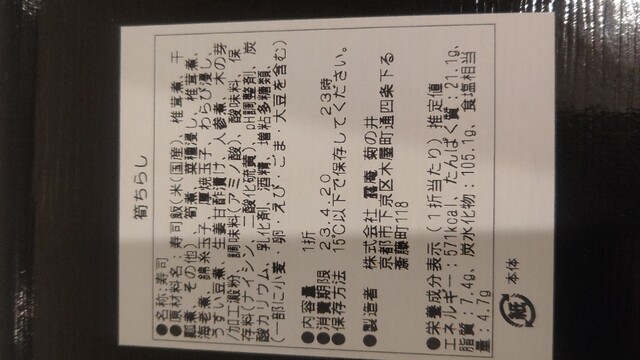 筍ちらし
●名称:寿司
●原材料名:寿司飯(米(国産)、椎茸煮、干
瓢煮、その他)、筍煮、菜種浸し、椎茸煮、
海老煮、錦糸玉子、厚焼玉子、わらび浸し、
うすい豆煮、生姜甘酢漬け、人参煮、木の芽
/加工澱粉、調味料(アミノ酸)、酸味料、保
存料(ナイシン、二酸化硫黄)、pH調整剤、炭
酸カリウム、乳化剤、酒精、増粘多糖類、
(一部に小麦・卵・えび・ごま・大豆を含む)
●内容量 1折
●消費期限 23.4.20 23時
●保存方法 15℃以下で保存してください。
●製造者 株式会社 露庵 菊の井
京都市下京区木屋町通四条下る
斎藤町118
●栄養成分表示(1折当たり)推定値
エネルギー:571kcal、たんぱく質:21.1g、
脂質:7.4g、炭水化物:105.1g、食塩相当
量:4.7g
紙 本体